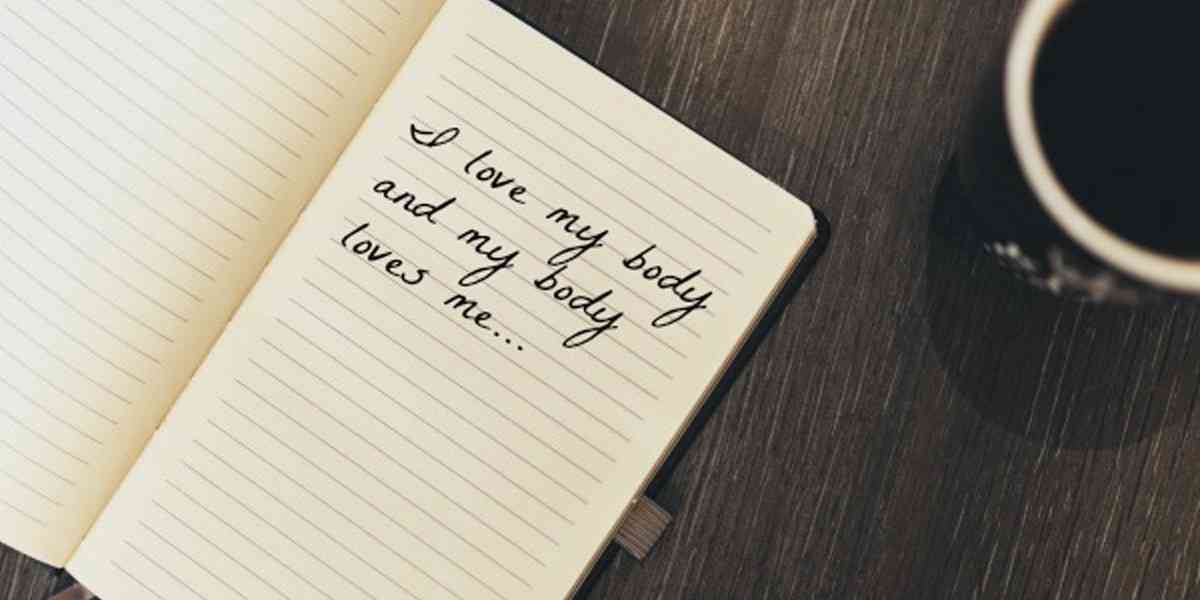 I love my body
and my body
loves me...